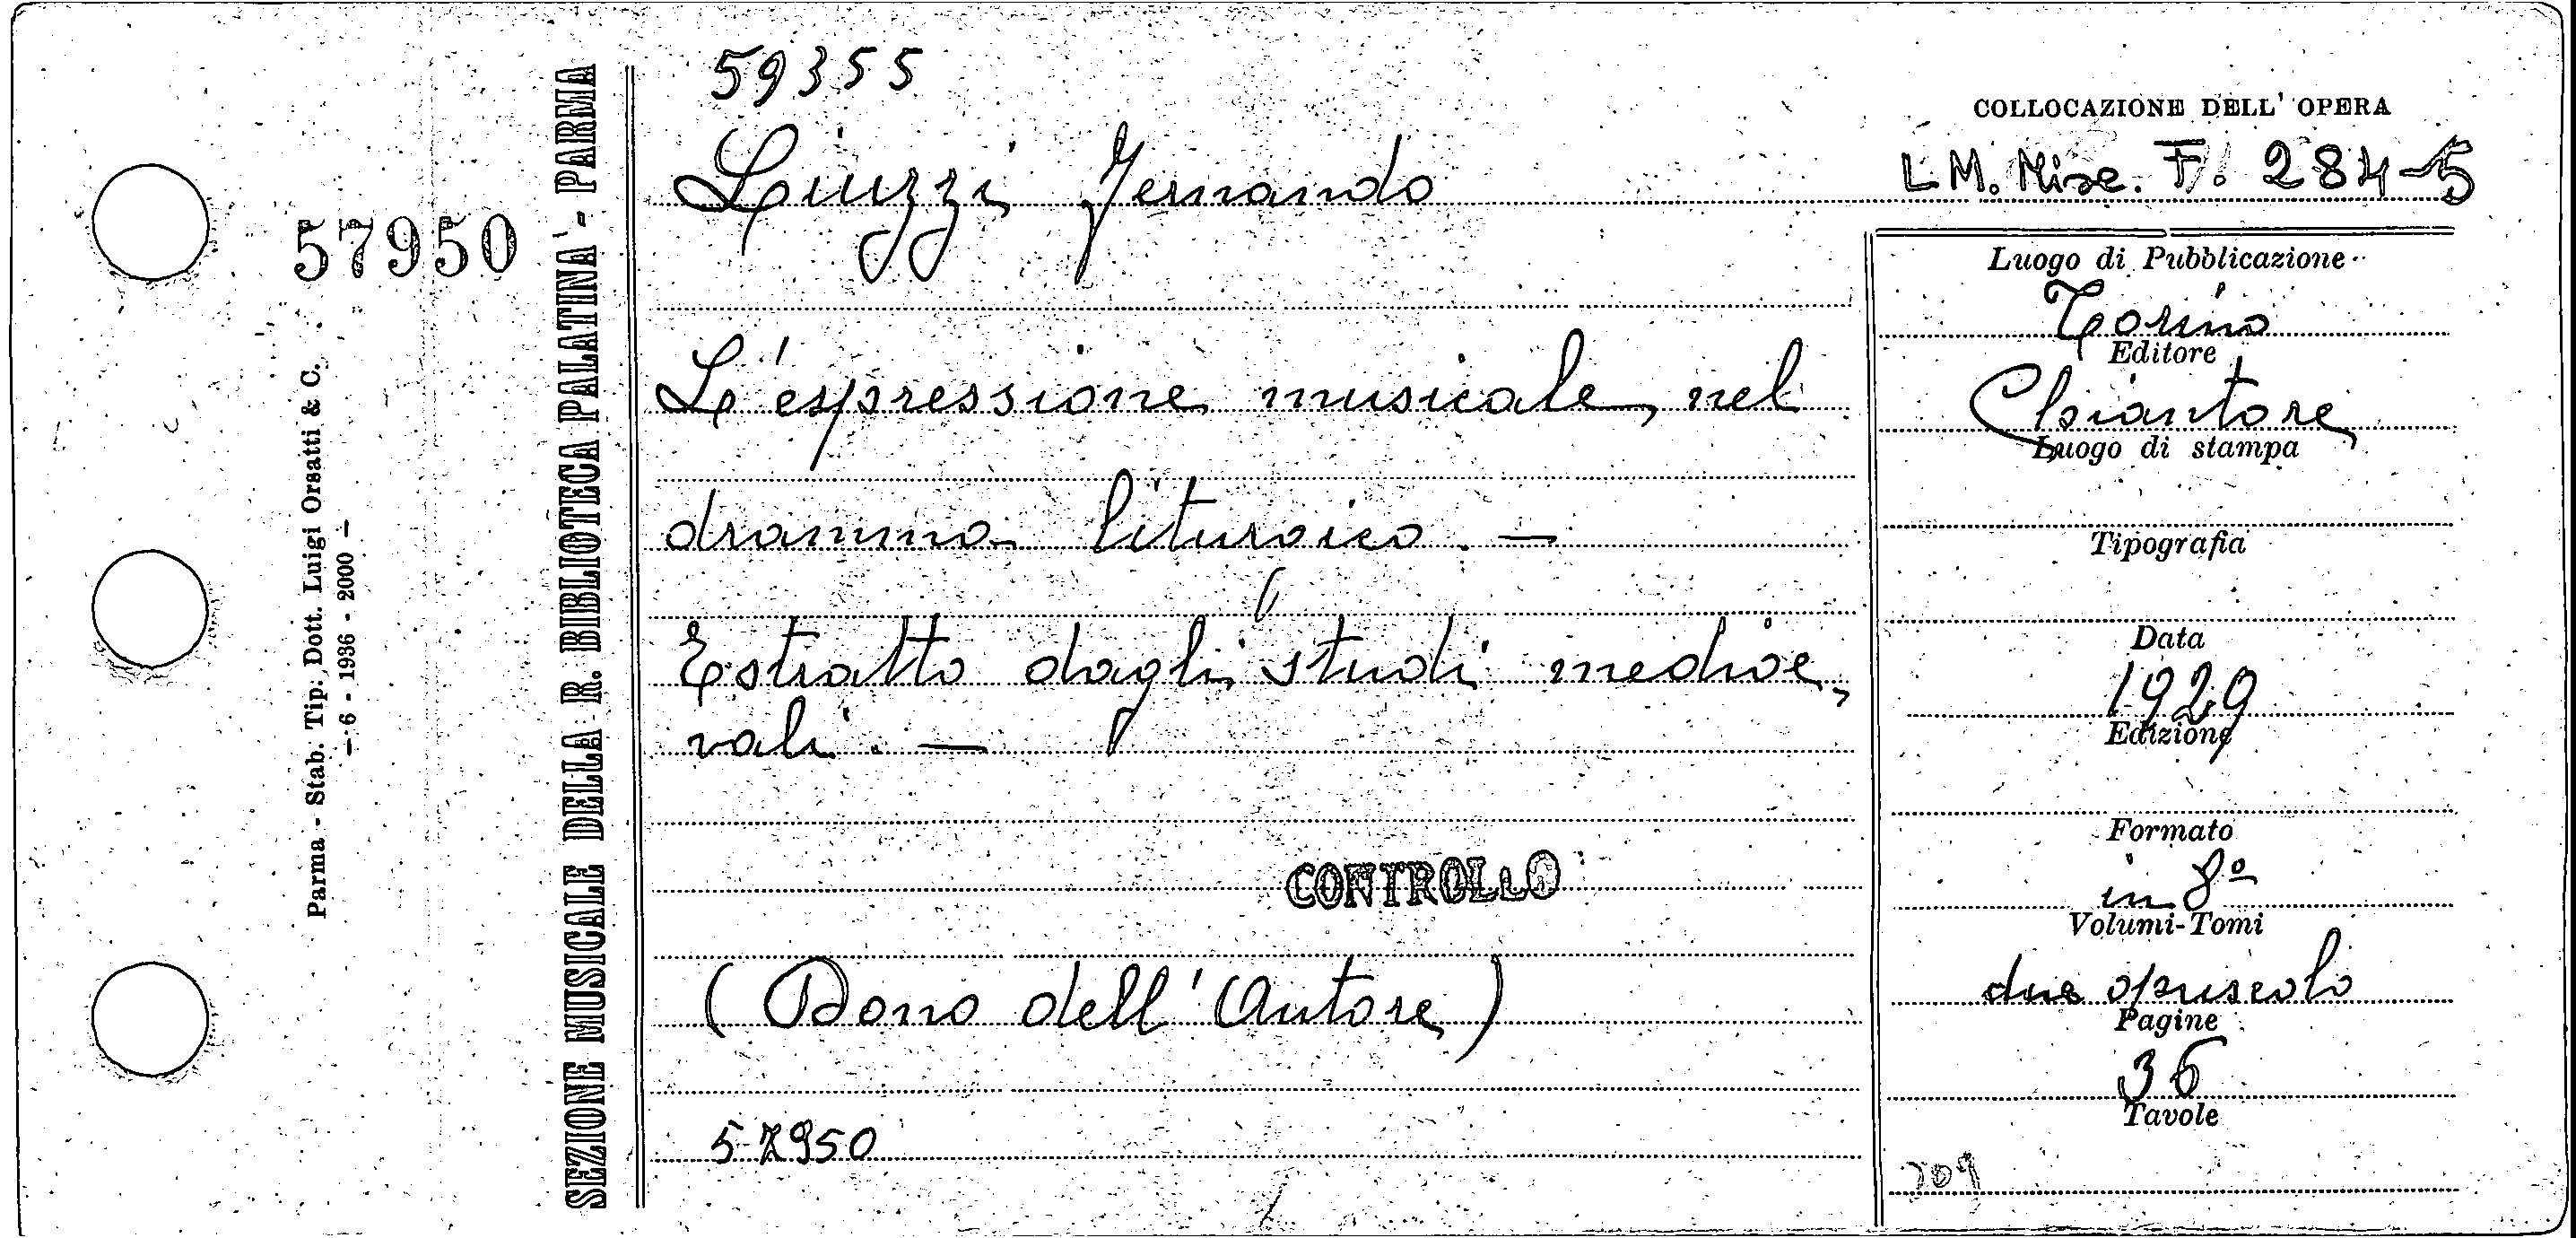 59355
COLLOCAZIONE DELL' OPERA
L M. Misc. F. 284-5
Liuzzi Fernando
57950
SEZIONE MUSICALE DELLA R. BIBLIOTECA PALATINA - PARMA
Parma - Stab. Tip. Dott. Luigi Orsatti & C.
— 6 - 1936 - 2000 —
L'espressione musicale nel
dramma liturgico. —
Estratto dagli studi medioe,
vali. —
CONTROLLO
(Dono dell'Autore)
57950
Luogo di Pubblicazione
Torino
Editore
Chiantore
Luogo di stampa
Tipografia
Data
1929
Edizione
Formato
in 8º
Volumi-Tomi
due opuscolo
Pagine
36
Tavole
709